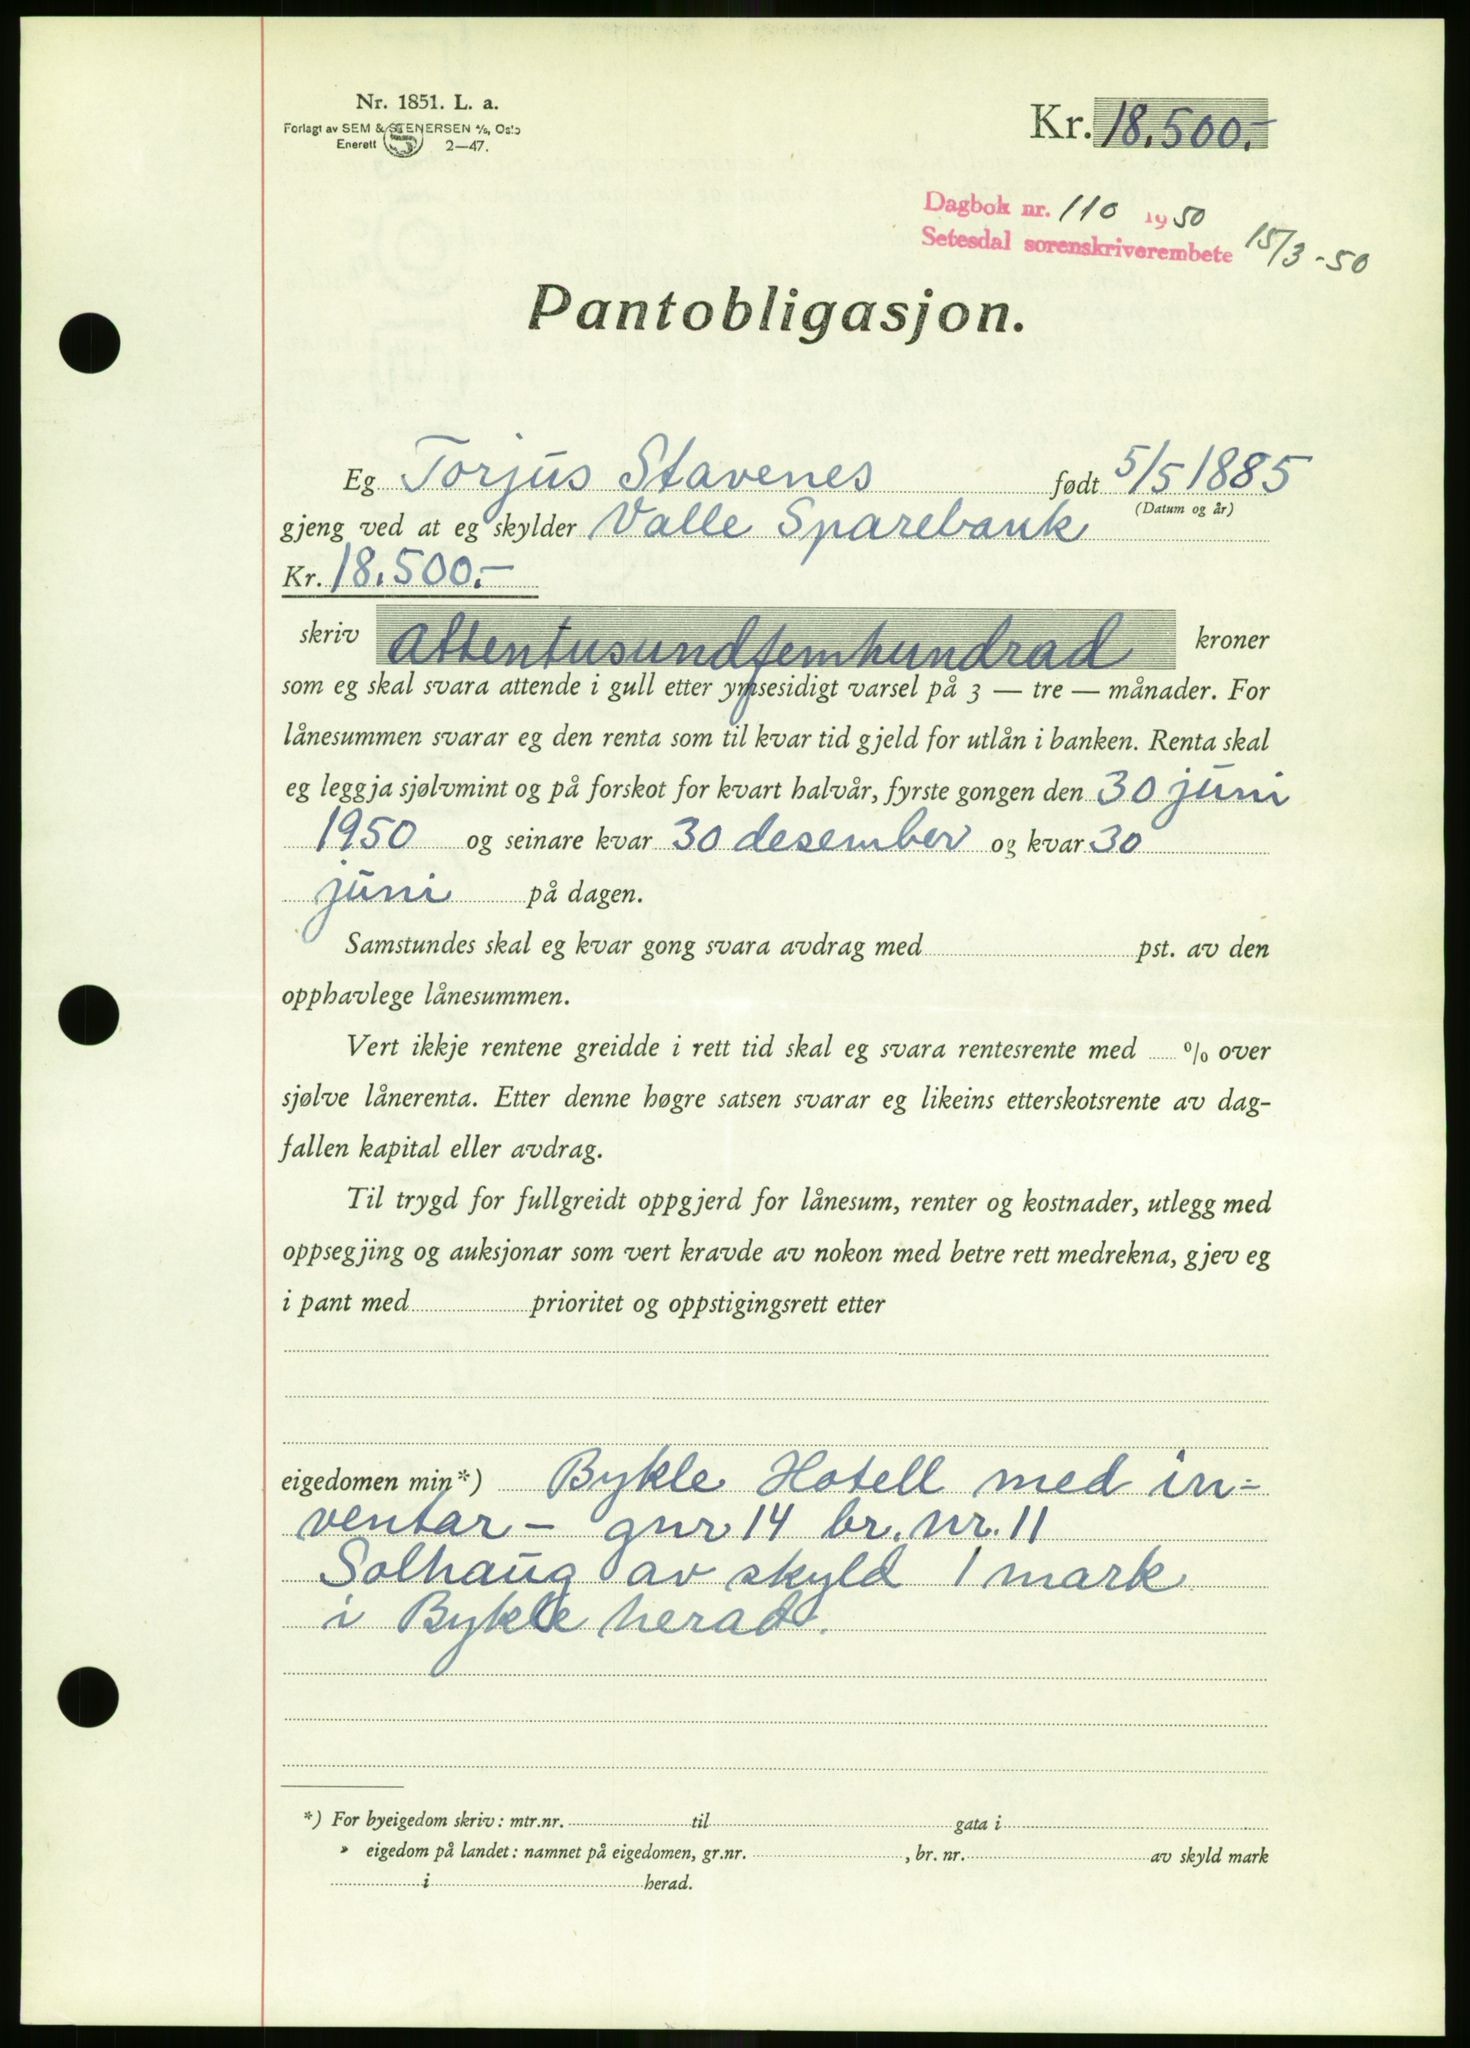 Nr. 1851. L. a.
Forlagt av SEM & STENERSEN A/S, Oslo
Enerett 2—47.
Kr. 18.500.-
Dagbok nr. 110 1950
Setesdal sorenskriverembete 15/3-50
Pantobligasjon.
Eg Torjus Stavenes født 5/5 1885
(Datum og år)
gjeng ved at eg skylder Valle Sparebank
Kr. 18.500.-
skriv attentusundfemhundrad kroner
som eg skal svara attende i gull etter ymsesidigt varsel på 3 — tre — månader. For
lånesummen svarar eg den renta som til kvar tid gjeld for utlån i banken. Renta skal
eg leggja sjølvmint og på forskot for kvart halvår, fyrste gongen den 30 juni
1950 og seinare kvar 30 desember og kvar 30
juni på dagen.
Samstundes skal eg kvar gong svara avdrag med pst. av den
opphavlege lånesummen.
Vert ikkje rentene greidde i rett tid skal eg svara rentesrente med % over
sjølve lånerenta. Etter denne høgre satsen svarar eg likeins etterskotsrente av dag-
fallen kapital eller avdrag.
Til trygd for fullgreidt oppgjerd for lånesum, renter og kostnader, utlegg med
oppsegjing og auksjonar som vert kravde av nokon med betre rett medrekna, gjev eg
i pant med prioritet og oppstigingsrett etter
eigedomen min*) Bykle Hotell med in-
ventar - gnr 14 br. nr. 11
Solhaug av skyld 1 mark
i Bykle herad.
*) For byeigedom skriv: mtr.nr. til gata i
» eigedom på landet: namnet på eigedomen, gr.nr. , br. nr. av skyld mark
i herad.